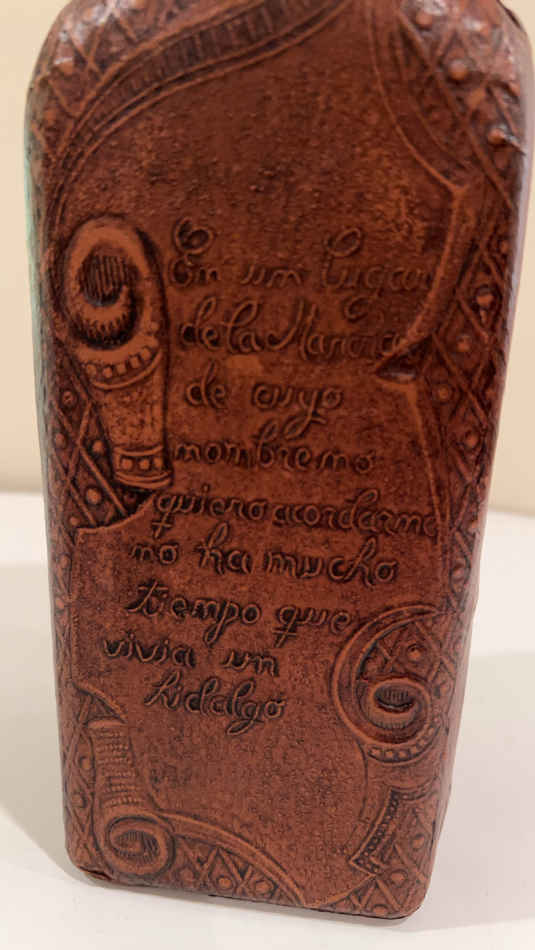 En un lugar
de la Mancha
de cuyo
nombre no
quiero acordarme
no ha mucho
tiempo que
vivia un
hidalgo